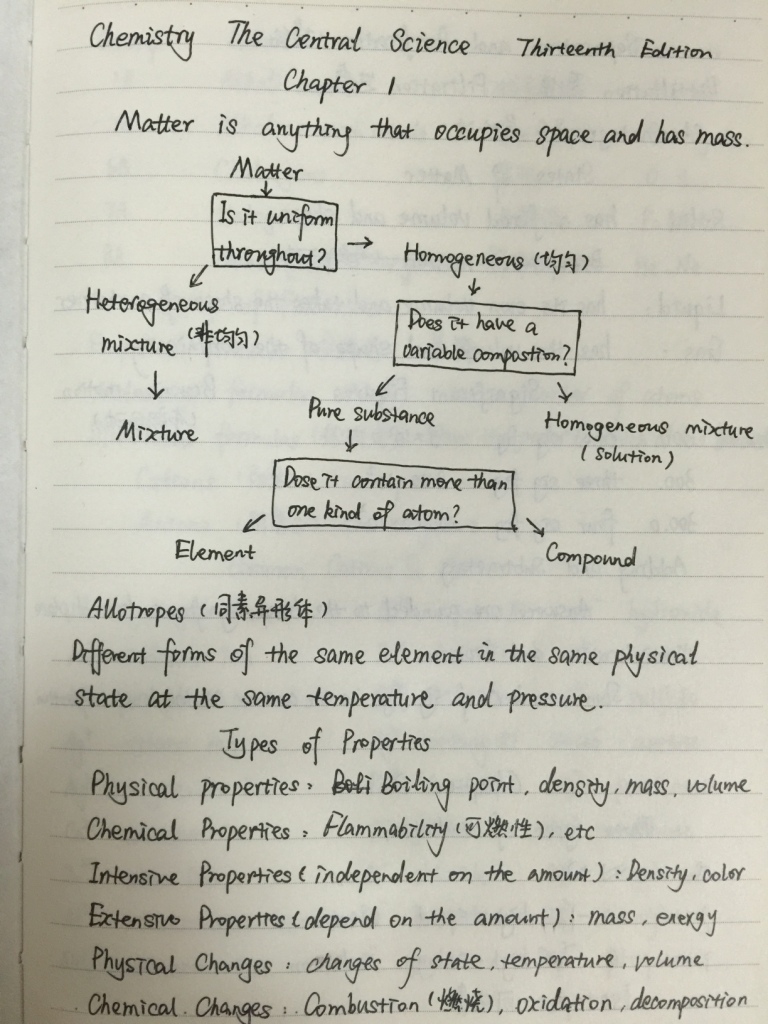 Chemistry The Central Science Thirteenth Edition
Chapter 1
Matter is anything that occupies space and has mass.
Matter
Is it uniform
throughout?
Homogeneous (均匀)
Heterogeneous
mixture (非均匀)
Does it have a
variable compostion?
Mixture
Pure substance
Homogeneous mixture
(solution)
Dose it contain more than
one kind of atom?
Element
Compound
Allotropes (同素异形体)
Different forms of the same element in the same physical
state at the same temperature and pressure.
Types of Properties
Physical properties: Boiling point, density, mass, volume
Chemical Properties: Flammability (可燃性), etc
Intensive Properties (independent on the amount): Density, color
Extensive Properties (depend on the amount): mass, energy
Physical Changes: changes of state, temperature, volume
Chemical Changes: Combustion (燃烧), oxidation, decomposition